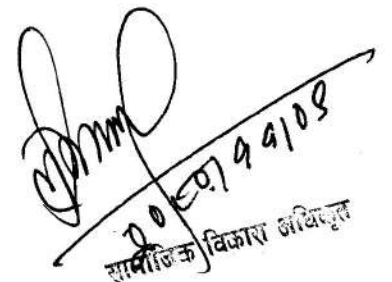 २०८०/११/०९
सामाजिक विकास अधिकृत